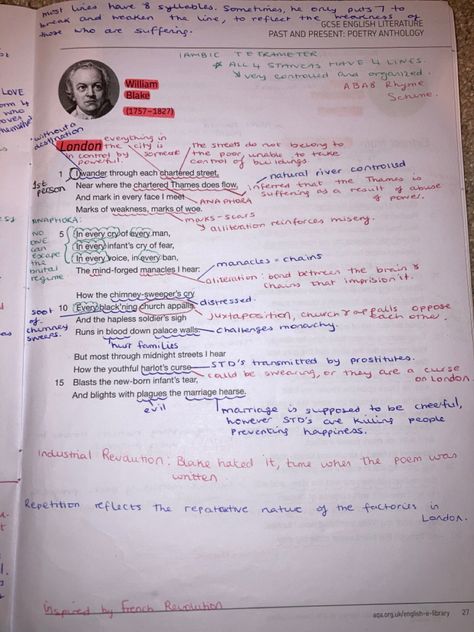 most lines have 8 syllables. Sometimes, he only puts 7 to
break and weaken the line, to reflect the weakness of
those who are suffering.
GCSE ENGLISH LITERATURE
PAST AND PRESENT: POETRY ANTHOLOGY
IAMBIC TETRAMETER.
* ALL 4 STANZAS HAVE 4 LINES.
very controlled and organized.
ABAB Rhyme
Scheme.
William
Blake
(1757–1827)
LOVE
without a
destination
London
everything in
the city is
in control by someone
powerful.
the streets do not belong to
the poor, unable to take
control of buildings.
1 I wander through each chartered street,
natural river controlled
1st
person
Near where the chartered Thames does flow,
inferred that the Thames is
suffering as a result of abuse
of power.
And mark in every face I meet
ANAPHORA
Marks of weakness, marks of woe.
marks - scars
alliteration reinforces misery.
ANAPHORA:
NO
ONE
can
escape
the
brutal
regime
5 In every cry of every man,
In every infant's cry of fear,
In every voice, in every ban,
The mind-forged manacles I hear:
manacles = chains
alliteration: bond between the brain &
chains that imprision it.
How the chimney-sweeper's cry
distressed.
soot
of
chimney
sweeps.
10 Every black'ning church appalls
juxtaposition, church & falls oppose
each other.
And the hapless soldier's sigh
Runs in blood down palace walls;
challenges monarchy.
hurt families
But most through midnight streets I hear
How the youthful harlot's curse
STD's transmitted by prostitutes.
could be swearing, or they are a curse
on London
15 Blasts the new-born infant's tear,
And blights with plagues the marriage hearse.
evil
marriage is supposed to be cheerful,
however STD's are killing people
preventing happiness.
Industrial Revolution: Blake hated it, time when the poem was
written.
Repetition reflects the repatative nature of the factories in
London.
inspired by French Revolution
aqa.org.uk/english-e-library 27